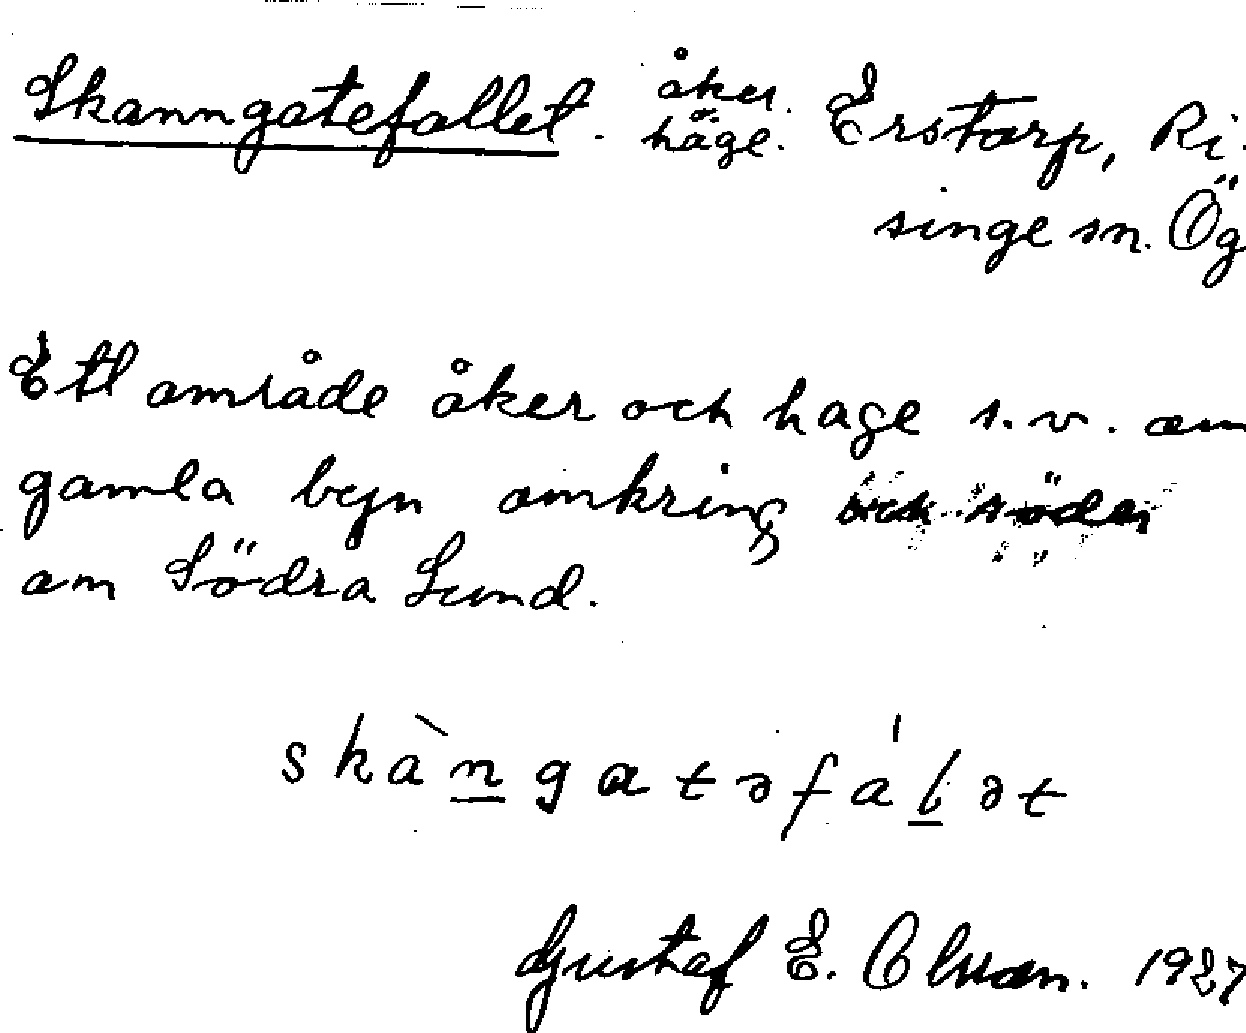 Skanngatefallet. åker. häge. Erstorp, Ri-
singe sn. Ög
Ett område åker och hage s.v. om
gamla byn omkring och söder
om Södra Lund.
skàngatəfálət
Gustaf E. Olsson. 1927